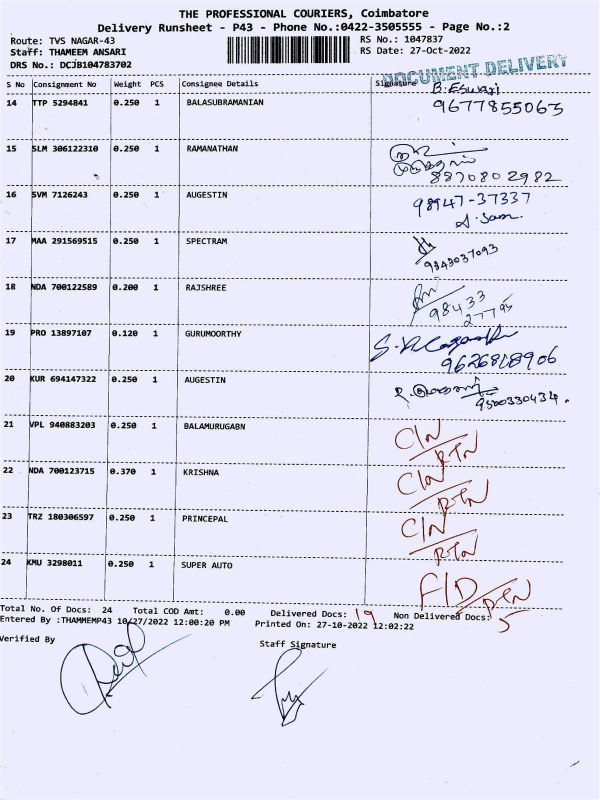 THE PROFESSIONAL COURIERS, Coimbatore
Delivery Runsheet - P43 - Phone No.:0422-3505555 - Page No.:2
Route: TVS NAGAR-43 RS No.: 1047837
Staff: THAMEEM ANSARI RS Date: 27-Oct-2022
DRS No.: DCJB104783702
DOCUMENT DELIVERY
S No Consignment No Weight PCS Consignee Details Signature
14 TTP 5294841 0.250 1 BALASUBRAMANIAN B. Eswari
9677855063
15 SLM 306122310 0.250 1 RAMANATHAN
8870802982
16 SVM 7126243 0.250 1 AUGESTIN 98947-37337
A. Sam
17 MAA 291569515 0.250 1 SPECTRAM
9843037093
18 NDA 700122589 0.200 1 RAJSHREE
98433
27795
19 PRO 13897107 0.120 1 GURUMOORTHY
9626818906
20 KUR 694147322 0.250 1 AUGESTIN
9500330434.
21 VPL 940883203 0.250 1 BALAMURUGABN C/N
RTN
22 NDA 700123715 0.370 1 KRISHNA C/N
RTN
23 TRZ 180306597 0.250 1 PRINCEPAL C/N
RTN
24 KMU 3298011 0.250 1 SUPER AUTO F/D
RTN
Total No. Of Docs: 24 Total COD Amt: 0.00 Delivered Docs: 19 Non Delivered Docs: 5
Entered By :THAMMEMP43 10/27/2022 12:00:20 PM Printed On: 27-10-2022 12:02:22
Verified By Staff Signature